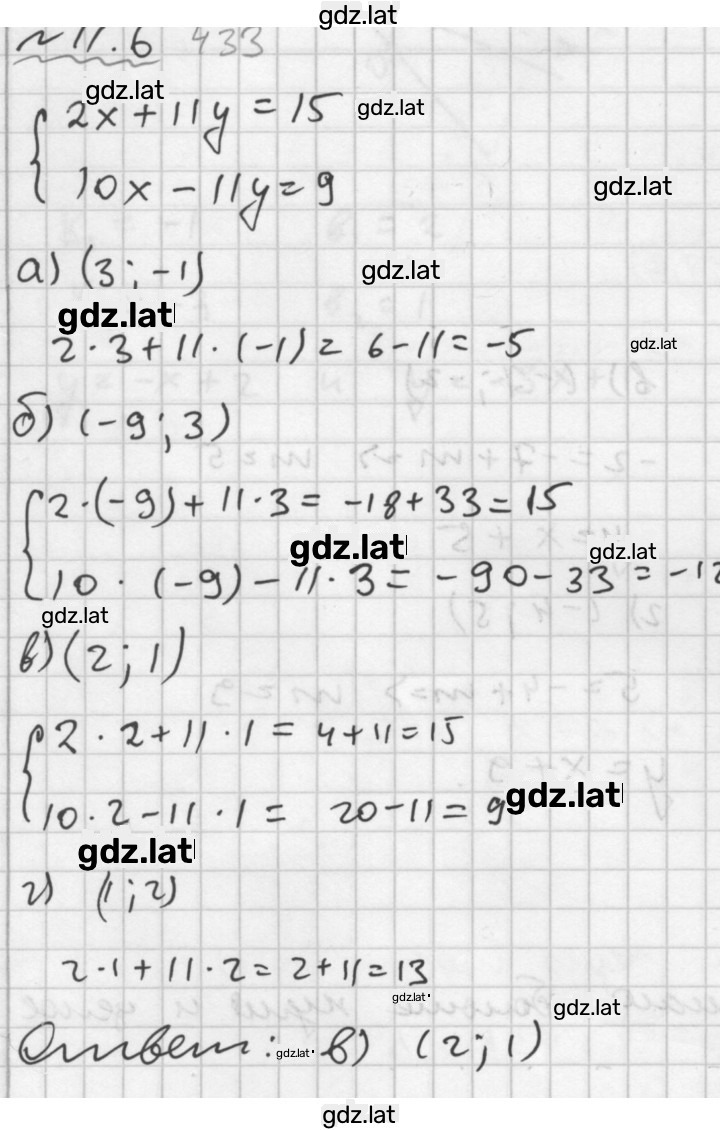 gdz.lat
№ 11.6 433
gdz.lat
2x + 11y = 15 gdz.lat
10x - 11y = 9 gdz.lat
а) (3; -1) gdz.lat
gdz.lat
2 · 3 + 11 · (-1) = 6 - 11 = -5 gdz.lat
б) (-9; 3)
2 · (-9) + 11 · 3 = -18 + 33 = 15
gdz.lat gdz.lat
10 · (-9) - 11 · 3 = -90 - 33 = -12
gdz.lat
в) (2; 1)
2 · 2 + 11 · 1 = 4 + 11 = 15
10 · 2 - 11 · 1 = 20 - 11 = 9 gdz.lat
gdz.lat
г) (1; 2)
2 · 1 + 11 · 2 = 2 + 11 = 13
gdz.lat gdz.lat
Ответ: gdz.lat в) (2; 1)
gdz.lat